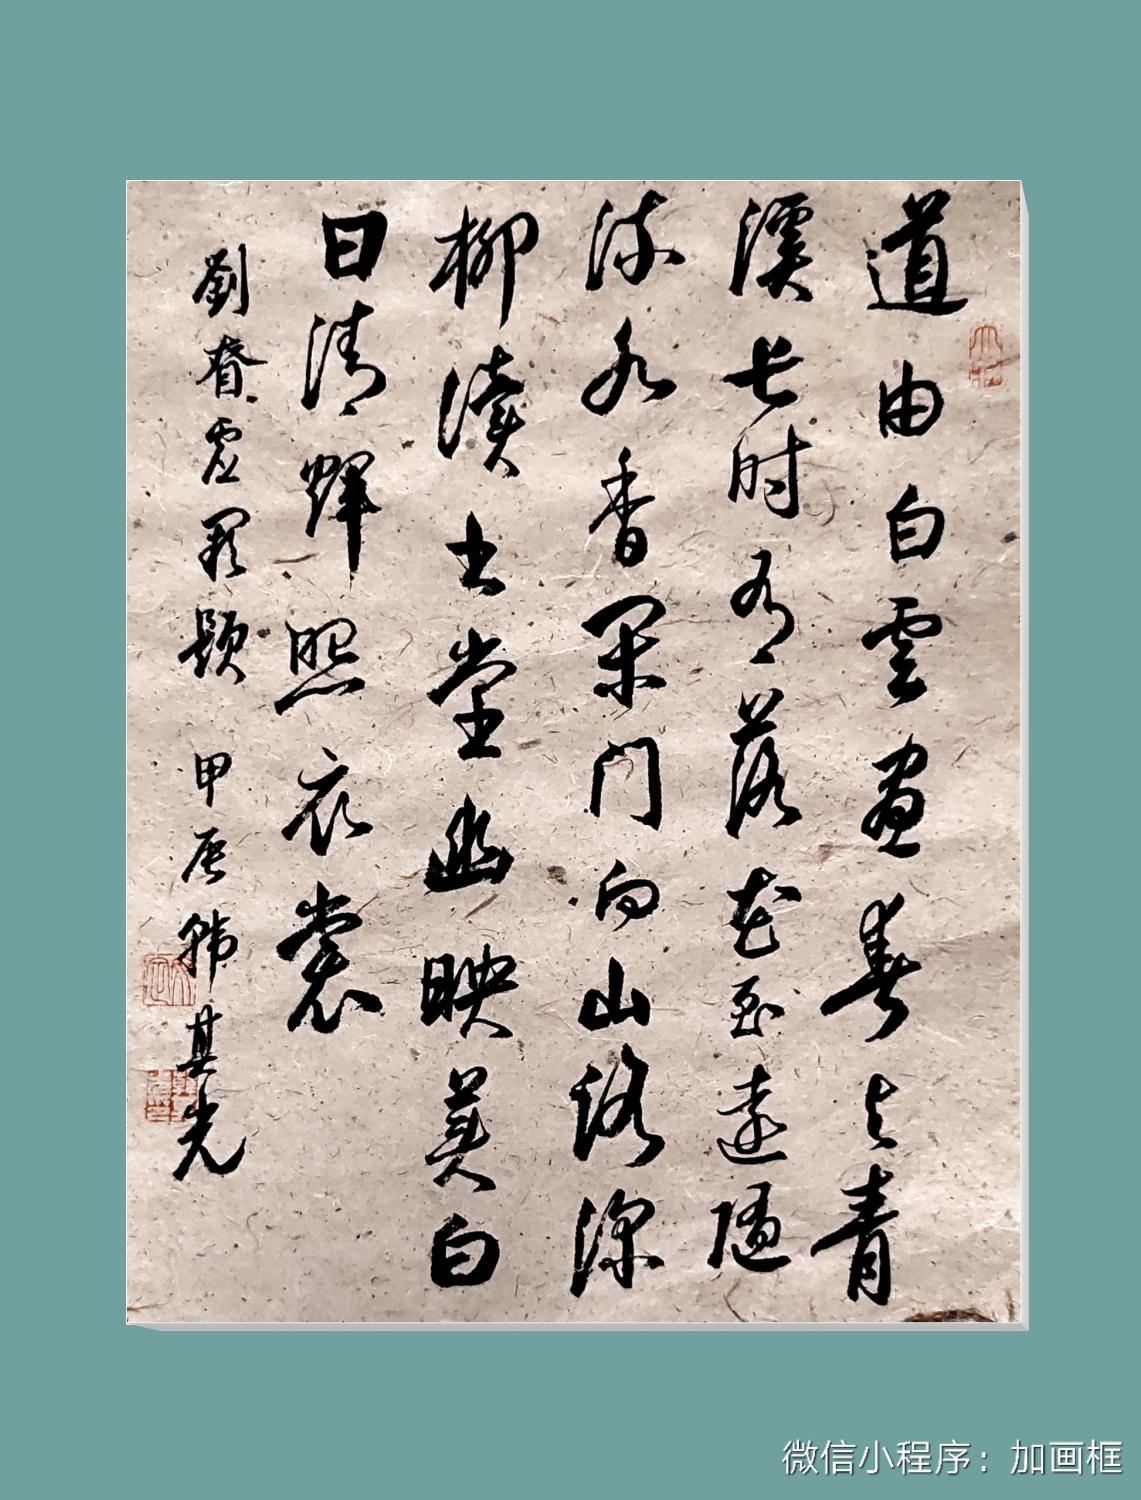 道由白雲盡春与青
溪长时有落花至遠随
流水香闲门向山路深
柳读书堂幽映美白
日清輝照衣裳
劉眘虚阙题 甲辰 韩其光
微信小程序：加画框